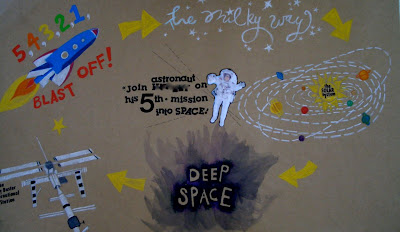 5, 4, 3, 2, 1
BLAST OFF!
the milky way
astronaut
"Join on
his 5th mission
into SPACE!
the
SOLAR
system
DEEP
SPACE